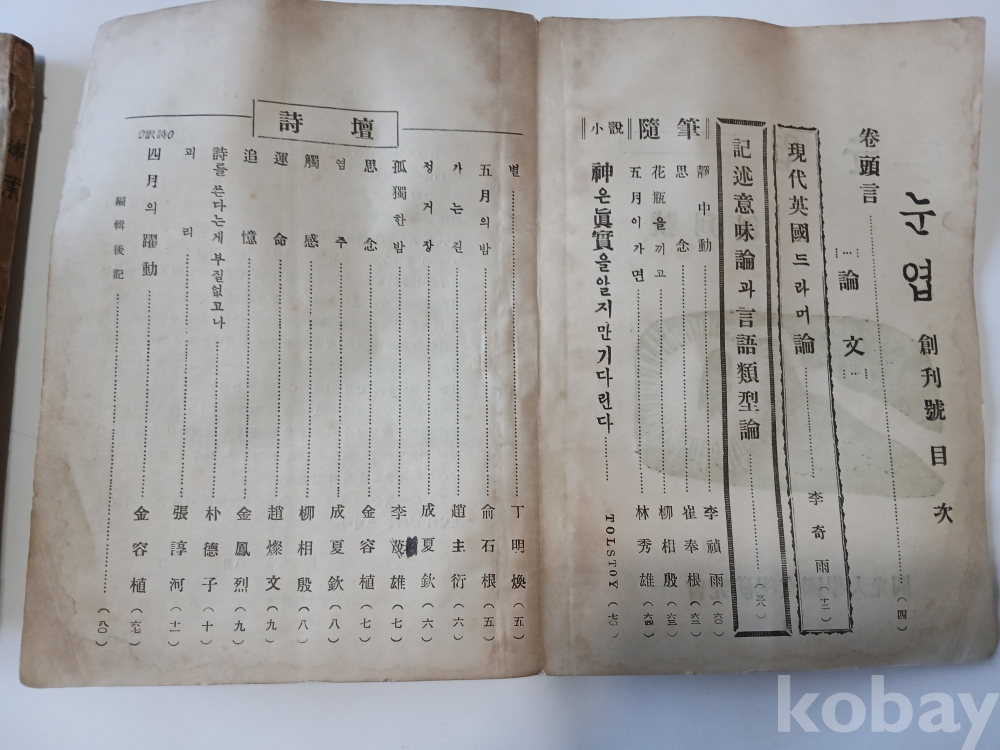 눈엽 創刊號 目次
卷頭言 (四)
論文
現代英國드라머論 李奇雨 (十二)
記述意味論과言語類型論 (三八)
隨筆
靜中動 李禎雨 (六〇)
思念 崔奉根 (六二)
花瓶을끼고 柳相殷 (六三)
五月이가면 林秀雄 (六四)
小說
神은眞實을알지만기다린다 TOLSTOY (七〇)
詩壇
별 丁明煥 (五)
五月의밤 俞石根 (五)
가는길 趙主衍 (六)
정거장 成夏欽 (六)
孤獨한밤 李 雄 (七)
思念 金容植 (七)
염주 成夏欽 (八)
觸感 柳相殷 (八)
運命 趙燦文 (九)
追憶 金鳳烈 (九)
詩를쓴다는게부질없고나 朴德子 (十)
피리 張諄河 (十一)
四月의躍動 金容植 (六七)
編輯後記 (八〇)
kobay